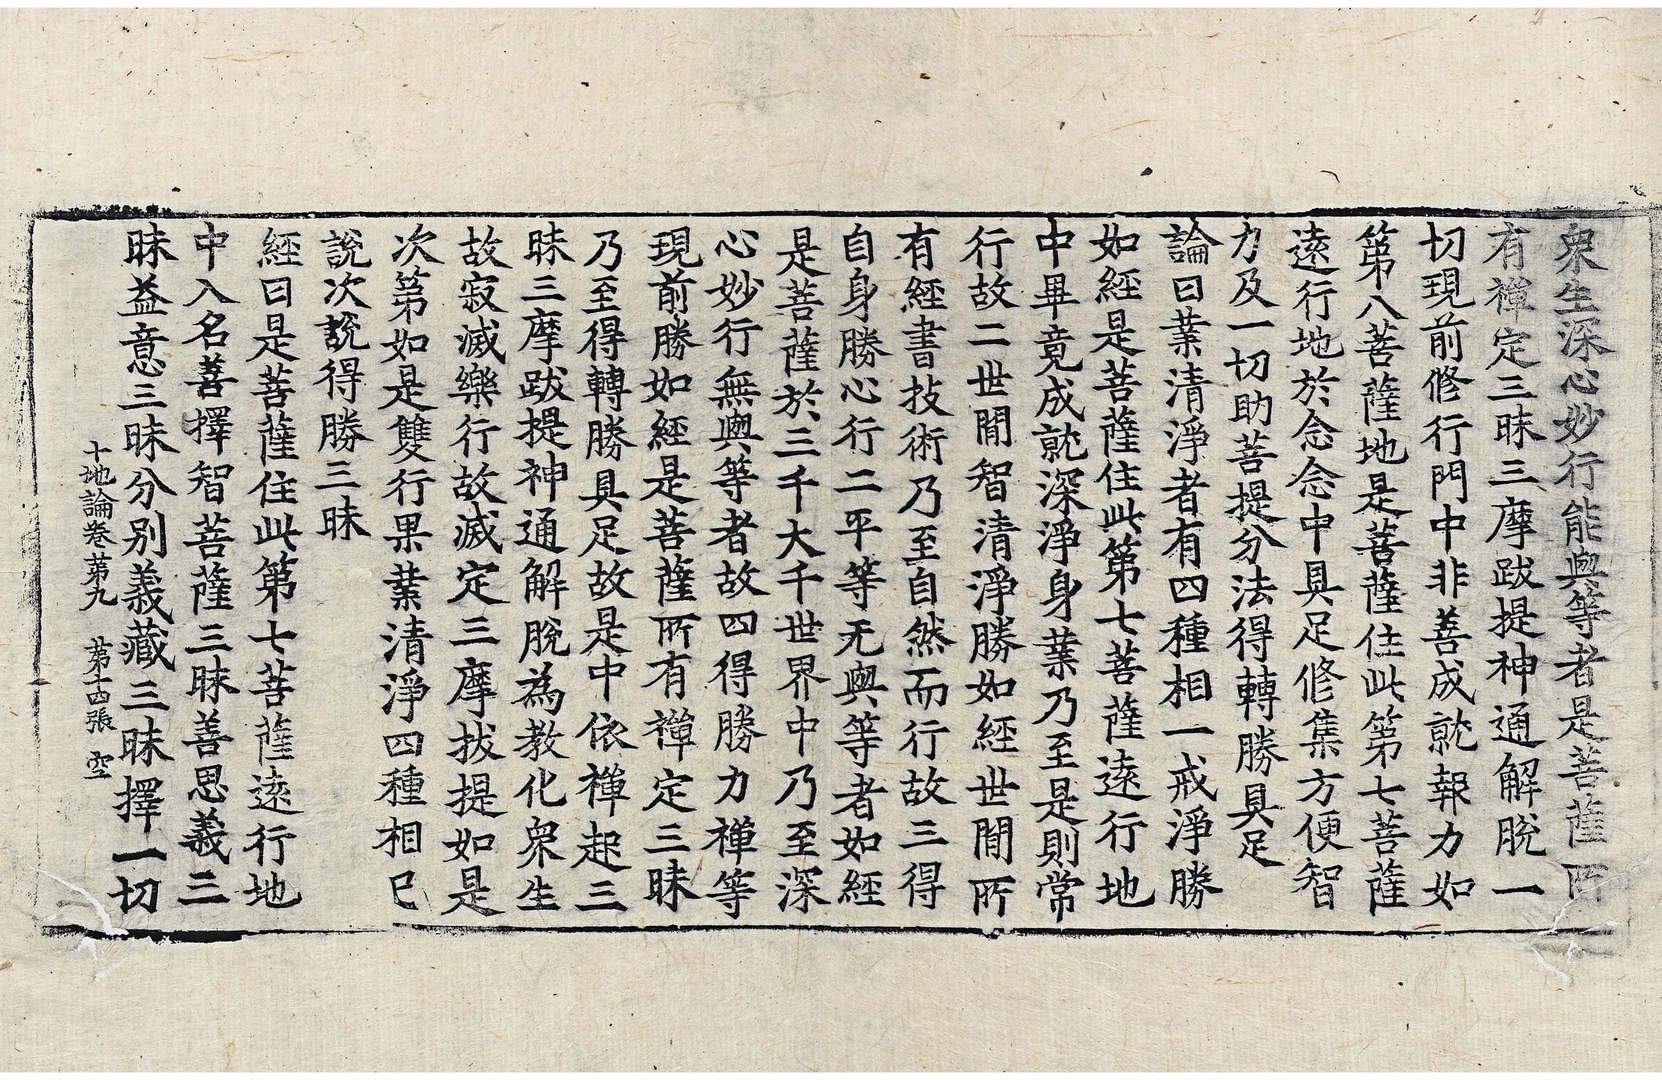 衆生深心妙行能與等者是菩薩所
有禪定三昧三摩跋提神通解脫一
切現前修行門中非善成就報力如
第八菩薩地是菩薩住此第七菩薩
遠行地於念念中具足修集方便智
力及一切助菩提分法得轉勝具足
論曰業清淨者有四種相一戒淨勝
如經是菩薩住此第七菩薩遠行地
中畢竟成就深淨身業乃至是則常
行故二世間智清淨勝如經世間所
有經書技術乃至自然而行故三得
自身勝心行二平等无與等者如經
是菩薩於三千大千世界中乃至深
心妙行無與等者故四得勝力禪等
現前勝如經是菩薩所有禪定三昧
乃至得轉勝具足故是中依禪起三
昧三摩跋提神通解脫為教化衆生
故寂滅樂行故滅定三摩拔提如是
次第如是雙行果業清淨四種相已
說次說得勝三昧
經曰是菩薩住此第七菩薩遠行地
中入名善擇智菩薩三昧善思義三
昧益意三昧分別義藏三昧擇一切
十地論卷第九　第十四張　空